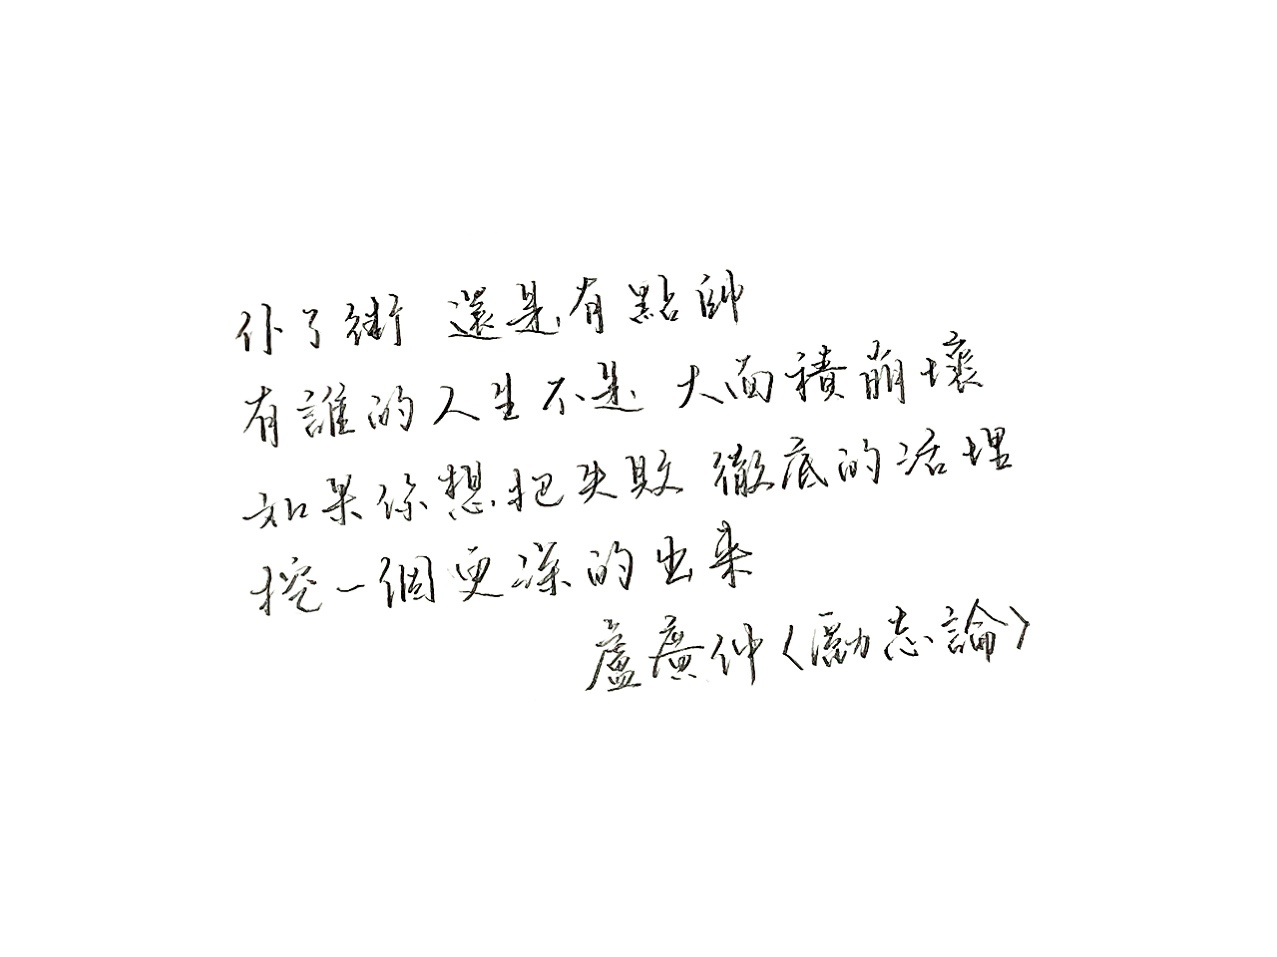 仆了街 還是有點帥
有誰的人生不是 大面積崩壞
如果你想把失敗 徹底的活埋
挖一個更深的出來
盧廣仲〈勵志論〉